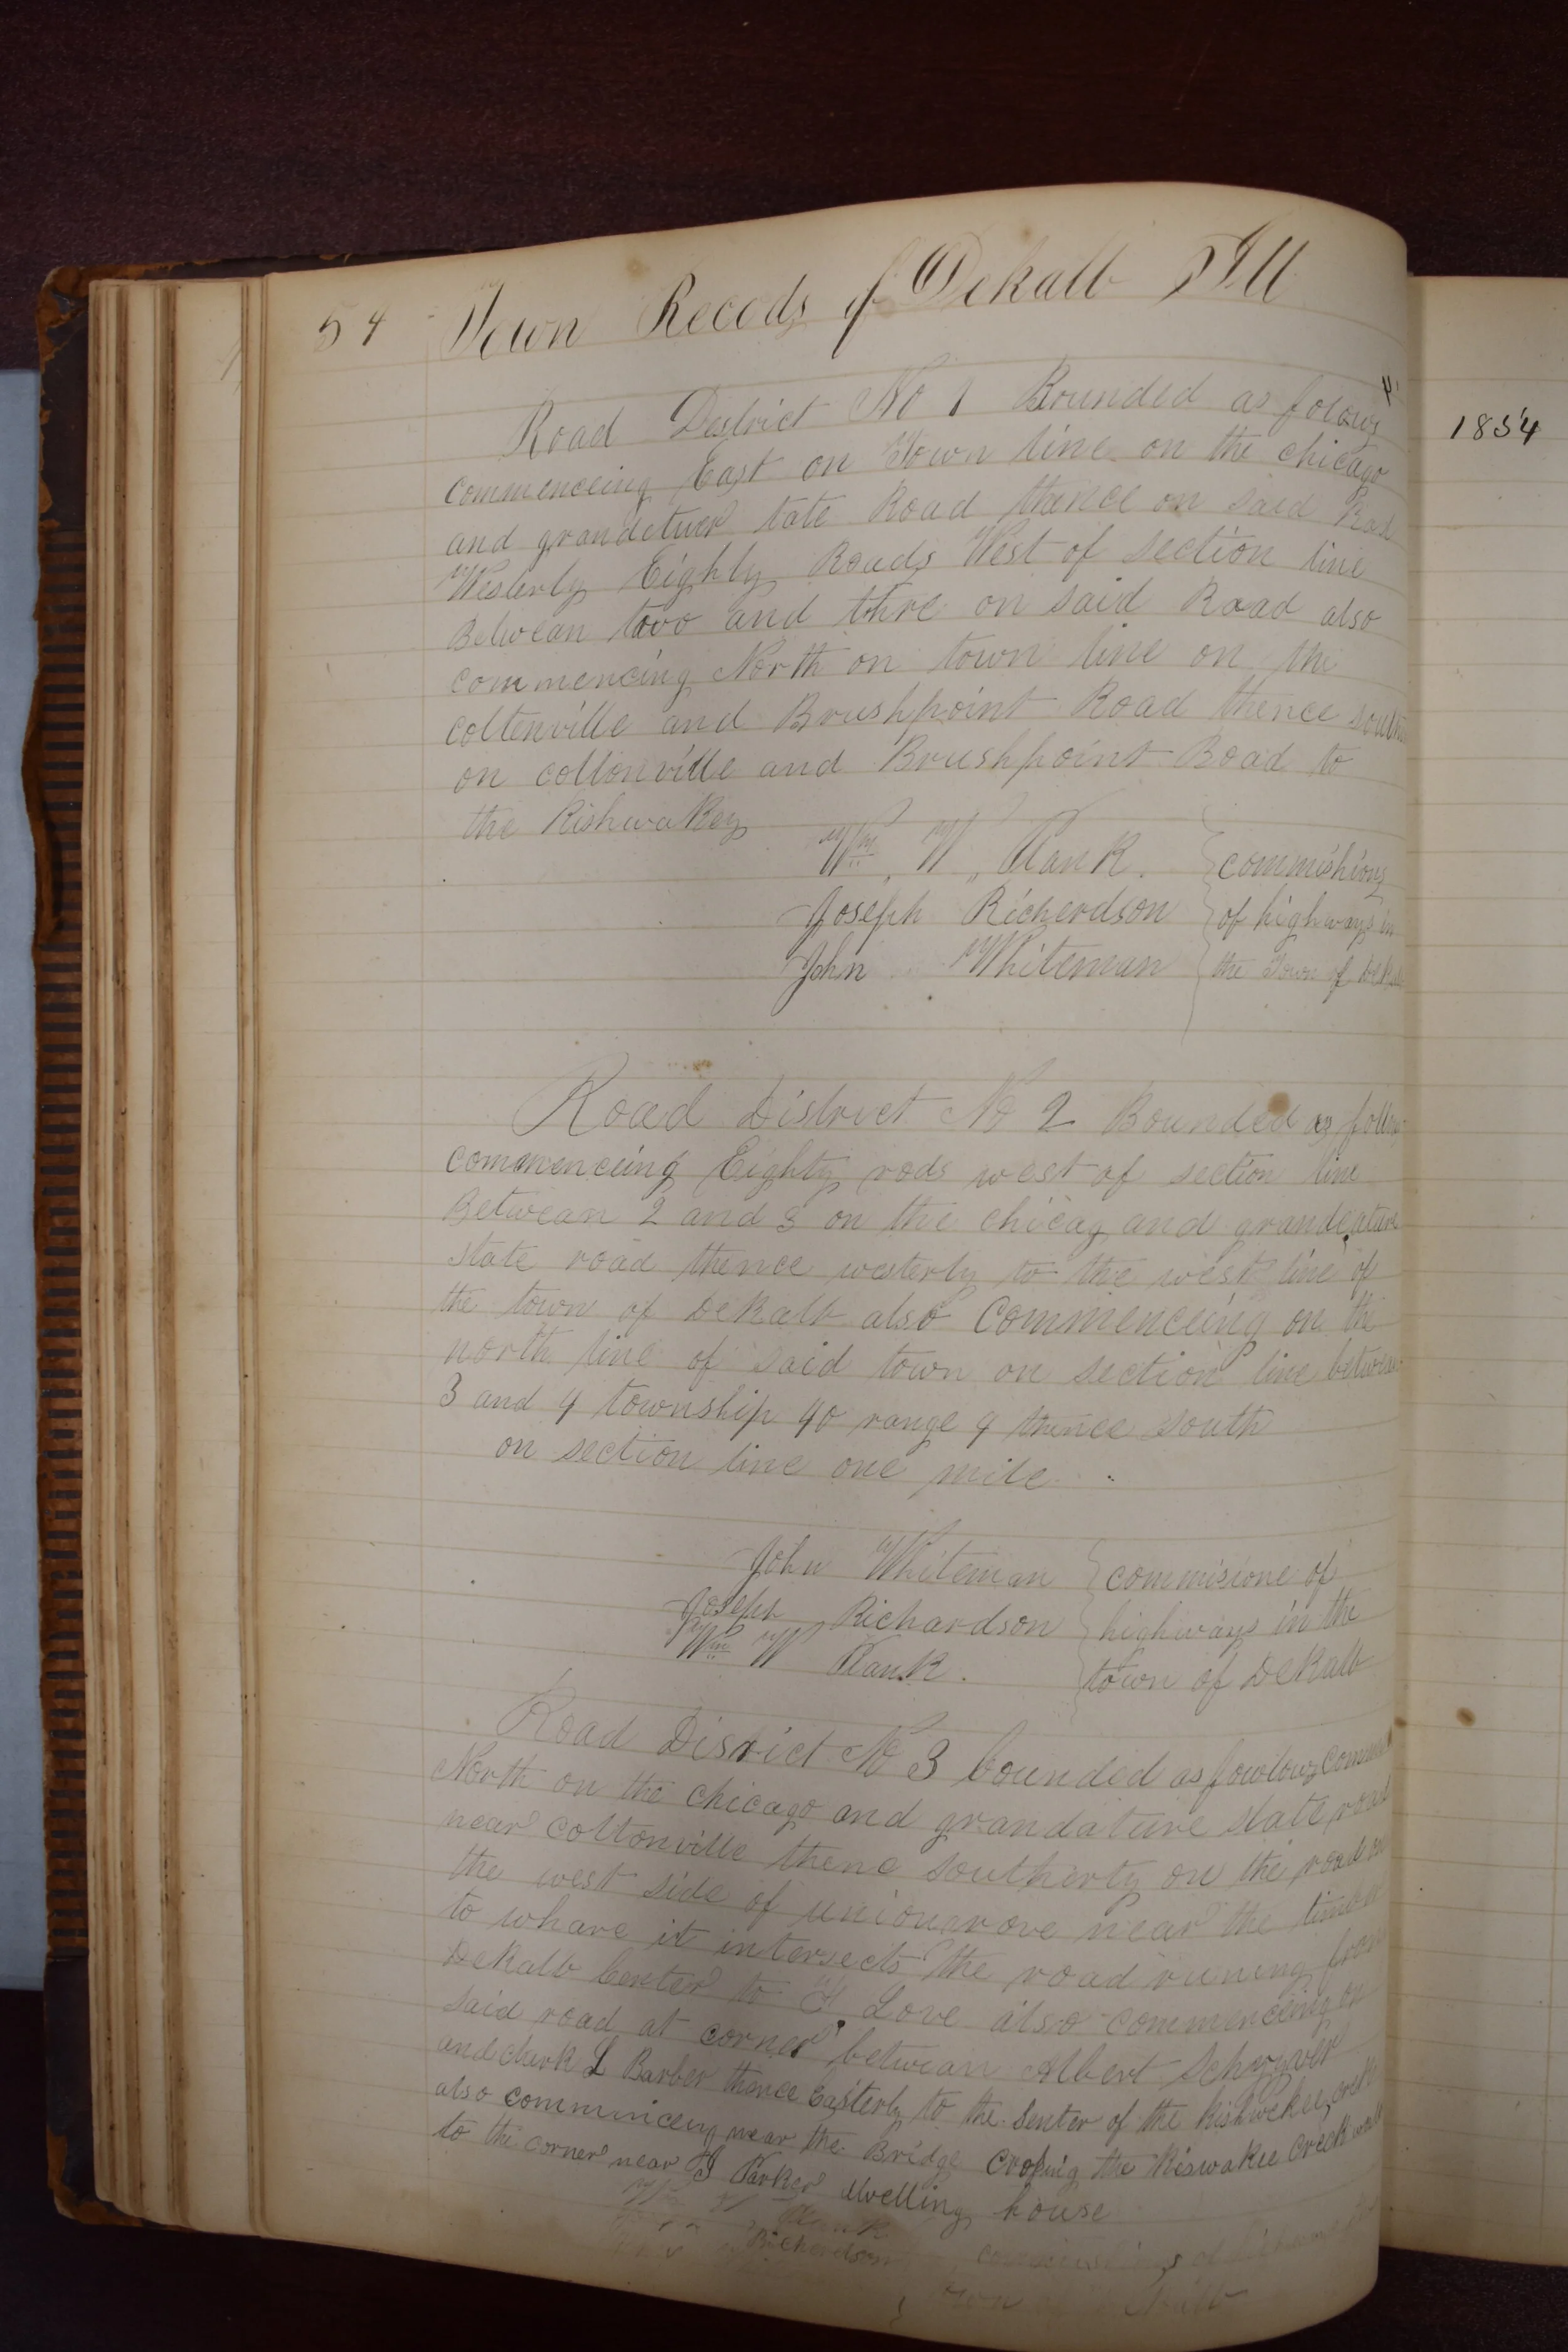 54 Town Recods of Dekalb Ill
Road District No 1 Bounded as folows
commenceing East on Town line on the chicago
and grandetuer tate Road thence on said Road
Westerly Eighty Roads West of section line
Betwean towo and thre on said Road also
commencing North on town line on the
coltenville and Brushpoint Road thence south
on coltonville and Brushpoint Road to
the Kishwakey
Wm. W. Plank. commishions
Joseph Richerdson of highways in
John Whiteman the Town of
Road District No 2 Bounded as follow
commenceing Eighty rods west of section line
Betwean 2 and 3 on the chicag and grandeature
state road thence westerly to the west line of
the town of DeKalb also Commenceing on the
north line of said town on section line between
3 and 4 township 40 range 4 thence south
on section line one mile
John Whiteman commisione of
Joseph Richardson highways in the
Wm W Plank. town of DeKalb
Road District No 3 bounded as fowlows
North on the chicago and grandature state road
near coltonville thenc southerly on the road on
the west side of uniongrove near the timber
to whare it intersects the road runing from
Dekalb Center to Love also commenceing on
said road at corner betwean Albert Schryver
and L Barber thence Easterly to the Senter of the Kishwekee creek
also commenceing near the Bridge Crossing the Kiswakee Creek
to the corner near Parker dwelling house
Richerdson
1854